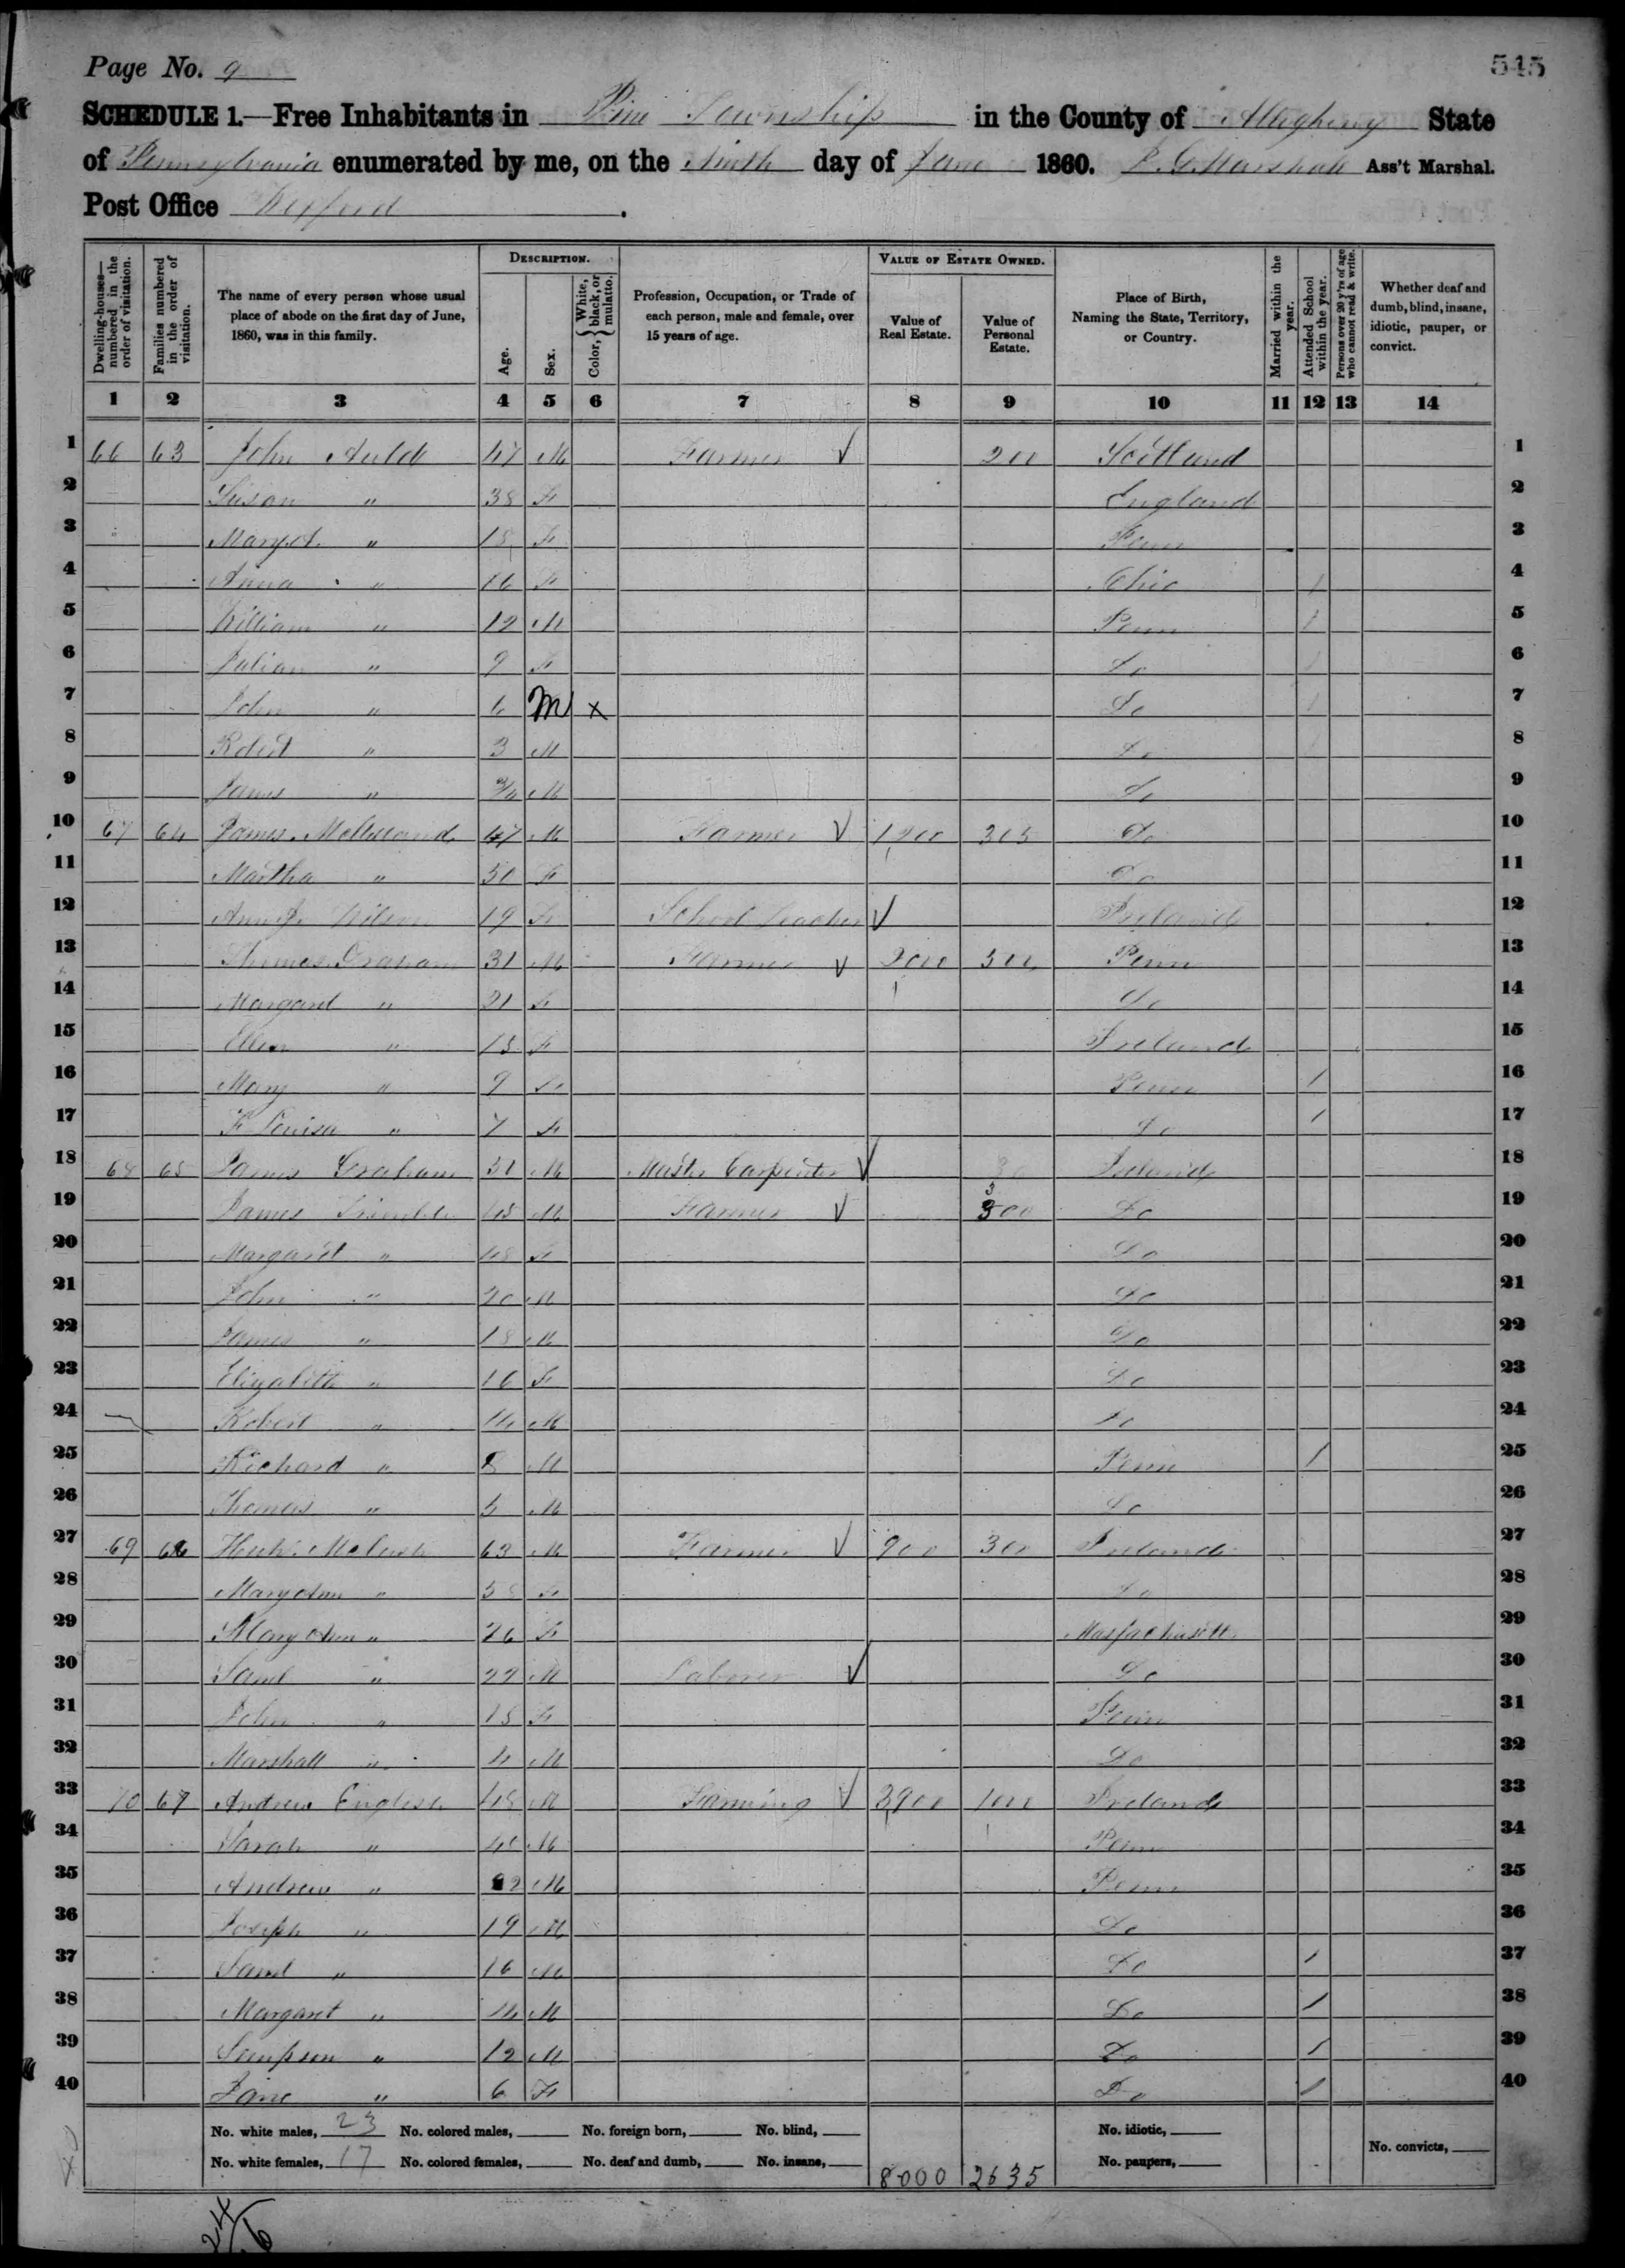 Page No. 9
545
SCHEDULE 1.—Free Inhabitants in Pine Township in the County of Allegheny State
of Pennsylvania enumerated by me, on the Ninth day of June 1860. Marshall Ass't Marshal.
Post Office Wexford.
Dwelling-houses—numbered in the order of visitation.
Families numbered in the order of visitation.
The name of every person whose usual place of abode on the first day of June, 1860, was in this family.
DESCRIPTION.
Age.
Sex.
Color, { White, black, or mulatto.
Profession, Occupation, or Trade of each person, male and female, over 15 years of age.
VALUE OF ESTATE OWNED.
Value of Real Estate.
Value of Personal Estate.
Place of Birth, Naming the State, Territory, or Country.
Married within the year.
Attended School within the year.
Persons over 20 y'rs of age who cannot read & write.
Whether deaf and dumb, blind, insane, idiotic, pauper, or convict.
1 2 3 4 5 6 7 8 9 10 11 12 13 14
1 66 63 John Auld 47 M Farmer √ 200 Scotland 1
2 Susan " 38 F England 2
3 " 18 F Penn 3
4 Anna " 16 F Ohio / 4
5 William " 12 M Penn / 5
6 Julian " 9 F Do / 6
7 John " 6 M x Do / 7
8 Robert " 3 M Do 8
9 James " M Do 9
10 67 64 James 47 M Farmer √ 1200 305 Do 10
11 Martha " 50 F Do 11
12 Ann J. Wilson 19 F School Teacher √ Ireland 12
13 Thomas Graham 31 M Farmer √ 2000 Penn 13
14 Margaret " 21 F Do 14
15 Ellen " F Ireland 15
16 Mary " 9 F Penn / 16
17 F Louisa " 7 F Do / 17
18 68 65 James Graham M Master Carpenter √ 30 Ireland 18
19 James Trimble 48 M Farmer √ 300 Do 19
20 Margaret " 48 F Do 20
21 John " 20 M Do 21
22 James " 18 M Do 22
23 Elizabeth " 16 F Do 23
24 Robert " 14 M Do 24
25 Richard " 8 M Penn / 25
26 Thomas " 5 M Do 26
27 69 66 63 M Farmer √ 900 300 Ireland 27
28 Mary Ann " 58 F Do 28
29 Mary Ann " 26 F Massachusetts 29
30 Saml " 22 M Laborer √ Do 30
31 John " 18 F Penn 31
32 Marshall " 4 M Do 32
33 70 67 Andrew English 48 M Farming √ 3900 1000 Ireland 33
34 Sarah " M Penn 34
35 Andrew " 22 M Penn 35
36 Joseph " 19 M Do 36
37 Saml " 16 M Do / 37
38 Margaret " 14 M Do / 38
39 Sampson " 12 M Do / 39
40 Jane " 6 F Do / 40
No. white males, 23 No. colored males, No. foreign born, No. blind, No. idiotic,
No. white females, 17 No. colored females, No. deaf and dumb, No. insane, 8000 2635 No. paupers, No. convicts,
24